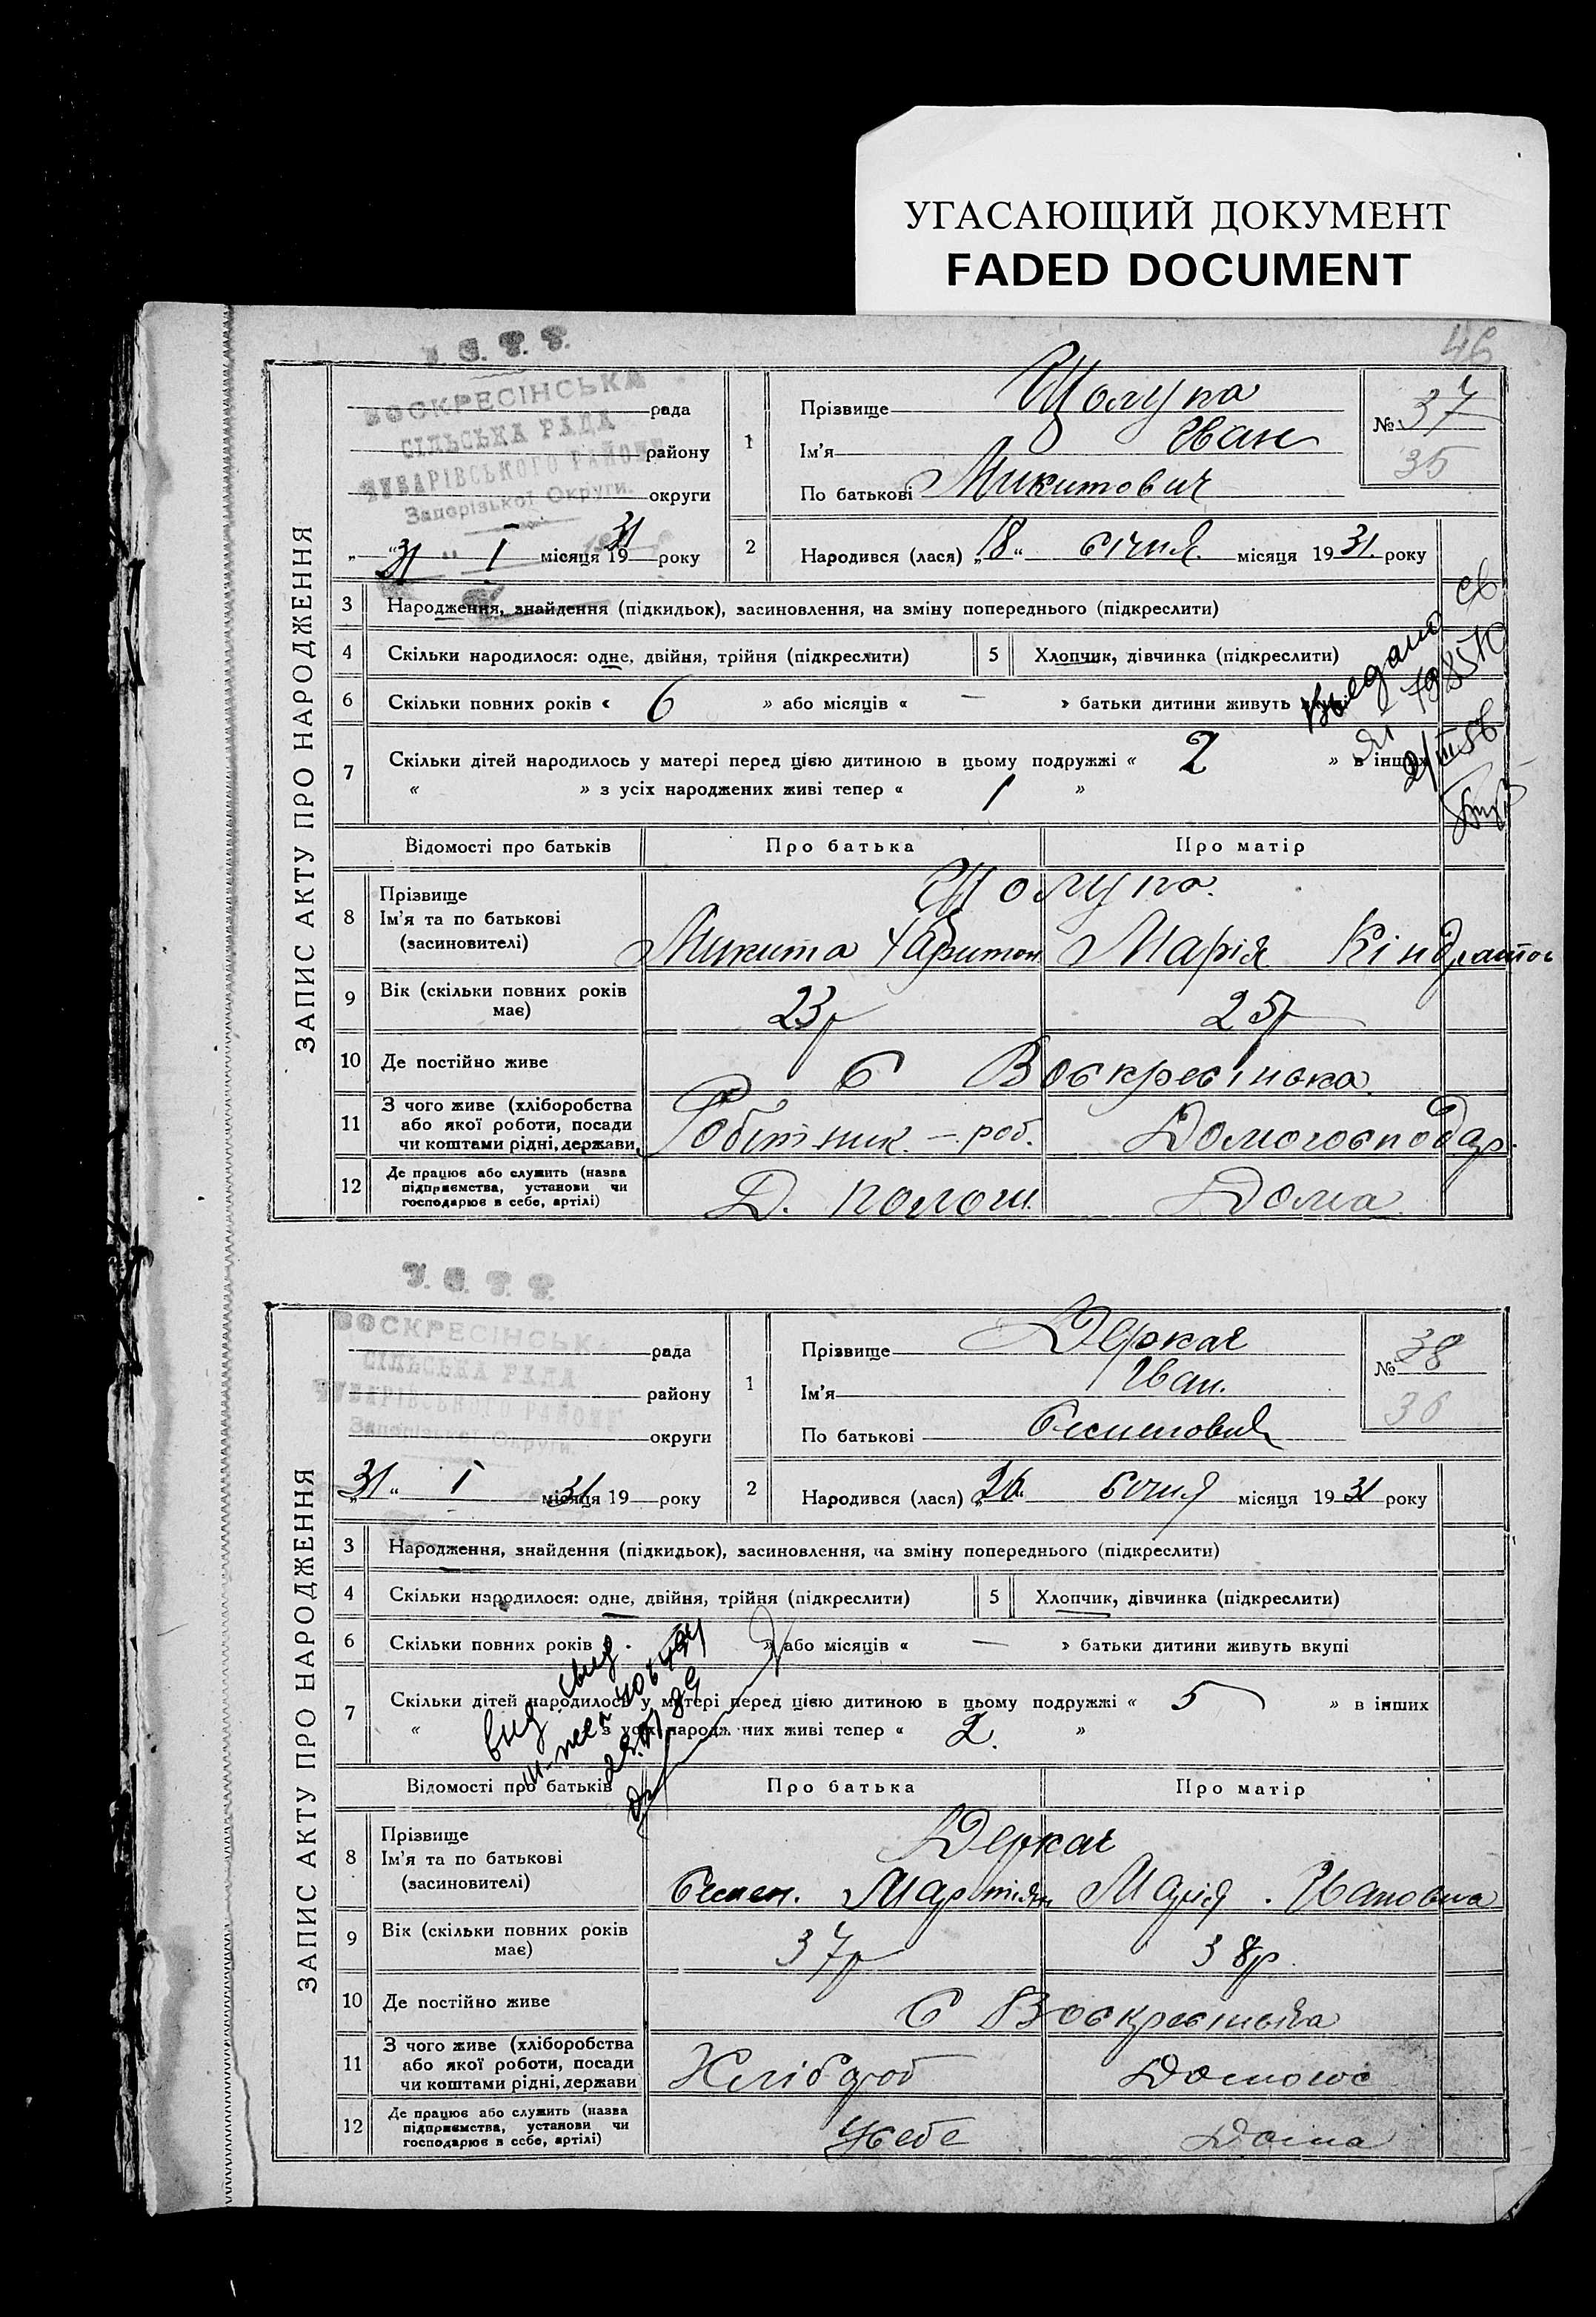 УГАСАЮЩИЙ ДОКУМЕНТ
FADED DOCUMENT
46
У. С. Р. Р.
ВОСКРЕСІНСЬКА
СІЛЬСЬКА РАДА
ЧУБАРІВСЬКОГО РАЙОНУ
Запорізької Округи.
ЗАПИС АКТУ ПРО НАРОДЖЕННЯ
рада
району
округи
„31“ I місяця 1931 року
1
Прізвище Щолупа
Ім'я Іван
По батькові Микитович
№ 37
35
2 Народився (лася) „18“ січня місяця 1931 року
3 Народження, знайдення (підкидьок), засиновлення, на зміну попереднього (підкреслити)
4 Скільки народилося: одне, двійня, трійня (підкреслити) 5 Хлопчик, дівчинка (підкреслити)
6 Скільки повних років « 6 » або місяців « — » батьки дитини живуть вкупі
7 Скільки дітей народилось у матері перед цією дитиною в цьому подружжі « 2 » в інших
« » з усіх народжених живі тепер « 1 »
Выдано св
Відомості про батьків Про батька Про матір
8 Прізвище
Ім'я та по батькові
(засиновителі)
Щолупа
Микита Харитон Марія Кіндратов
9 Вік (скільки повних років
має)
23р 25р
10 Де постійно живе С Воскресінка
11 З чого живе (хліборобства
або якої роботи, посади
чи коштами рідні, держави
Робітник – роб. Домогосподар.
12 Де працює або служить (назва
підприємства, установи чи
господарює в себе, артілі)
Д. пологи Дома
У. С. Р. Р.
ВОСКРЕСІНСЬК
СІЛЬСЬКА РАДА
ЧУБАРІВСЬКОГО РАЙОНУ
Запорізької Округи.
ЗАПИС АКТУ ПРО НАРОДЖЕННЯ
рада
району
округи
„31“ I 31 місяця 19 року
1
Прізвище Деркач
Ім'я Іван.
По батькові Семенович
№ 38
36
2 Народився (лася) „ січня місяця 1931 року
3 Народження, знайдення (підкидьок), засиновлення, на зміну попереднього (підкреслити)
4 Скільки народилося: одне, двійня, трійня (підкреслити) 5 Хлопчик, дівчинка (підкреслити)
6 Скільки повних років » або місяців « — » батьки дитини живуть вкупі
7 Скільки дітей народилось у матері перед цією дитиною в цьому подружжі « 5 » в інших
« з усіх народжених живі тепер « 2. »
вид свид
Відомості про батьків Про батька Про матір
8 Прізвище
Ім'я та по батькові
(засиновителі)
Деркач
Семен. Мартіян Марія. Івановна
9 Вік (скільки повних років
має)
37р 38р.
10 Де постійно живе С Воскресінка
11 З чого живе (хліборобства
або якої роботи, посади
чи коштами рідні, держави
Хлібороб Домогос
12 Де працює або служить (назва
підприємства, установи чи
господарює в себе, артілі)
Усебе Дома